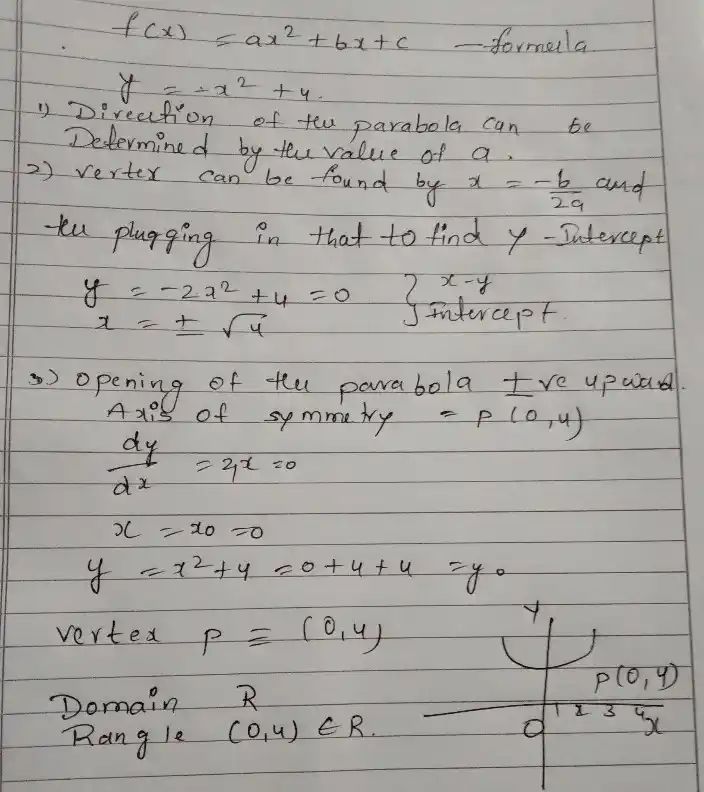 f(x) = ax² + bx + c — formula
y = -x² + 4.
1) Direction of the parabola can be
Determined by the value of a.
2) vertex can be found by x = -b/2a and
the plugging in that to find y - Intercept
y = -2x² + 4 = 0 } x-y
x = ± √4 } Intercept.
3) opening of the parabola ±ve upward.
Axis of symmetry = P(0,4)
dy/dx = 2x = 0
x = x0 = 0
y = x² + 4 = 0 + 4 + 4 = y0
vertex P ≡ (0,4)
Y
P(0,4)
Domain R
1 2 3 4 x
Rangle (0,4) ∈ R.
O